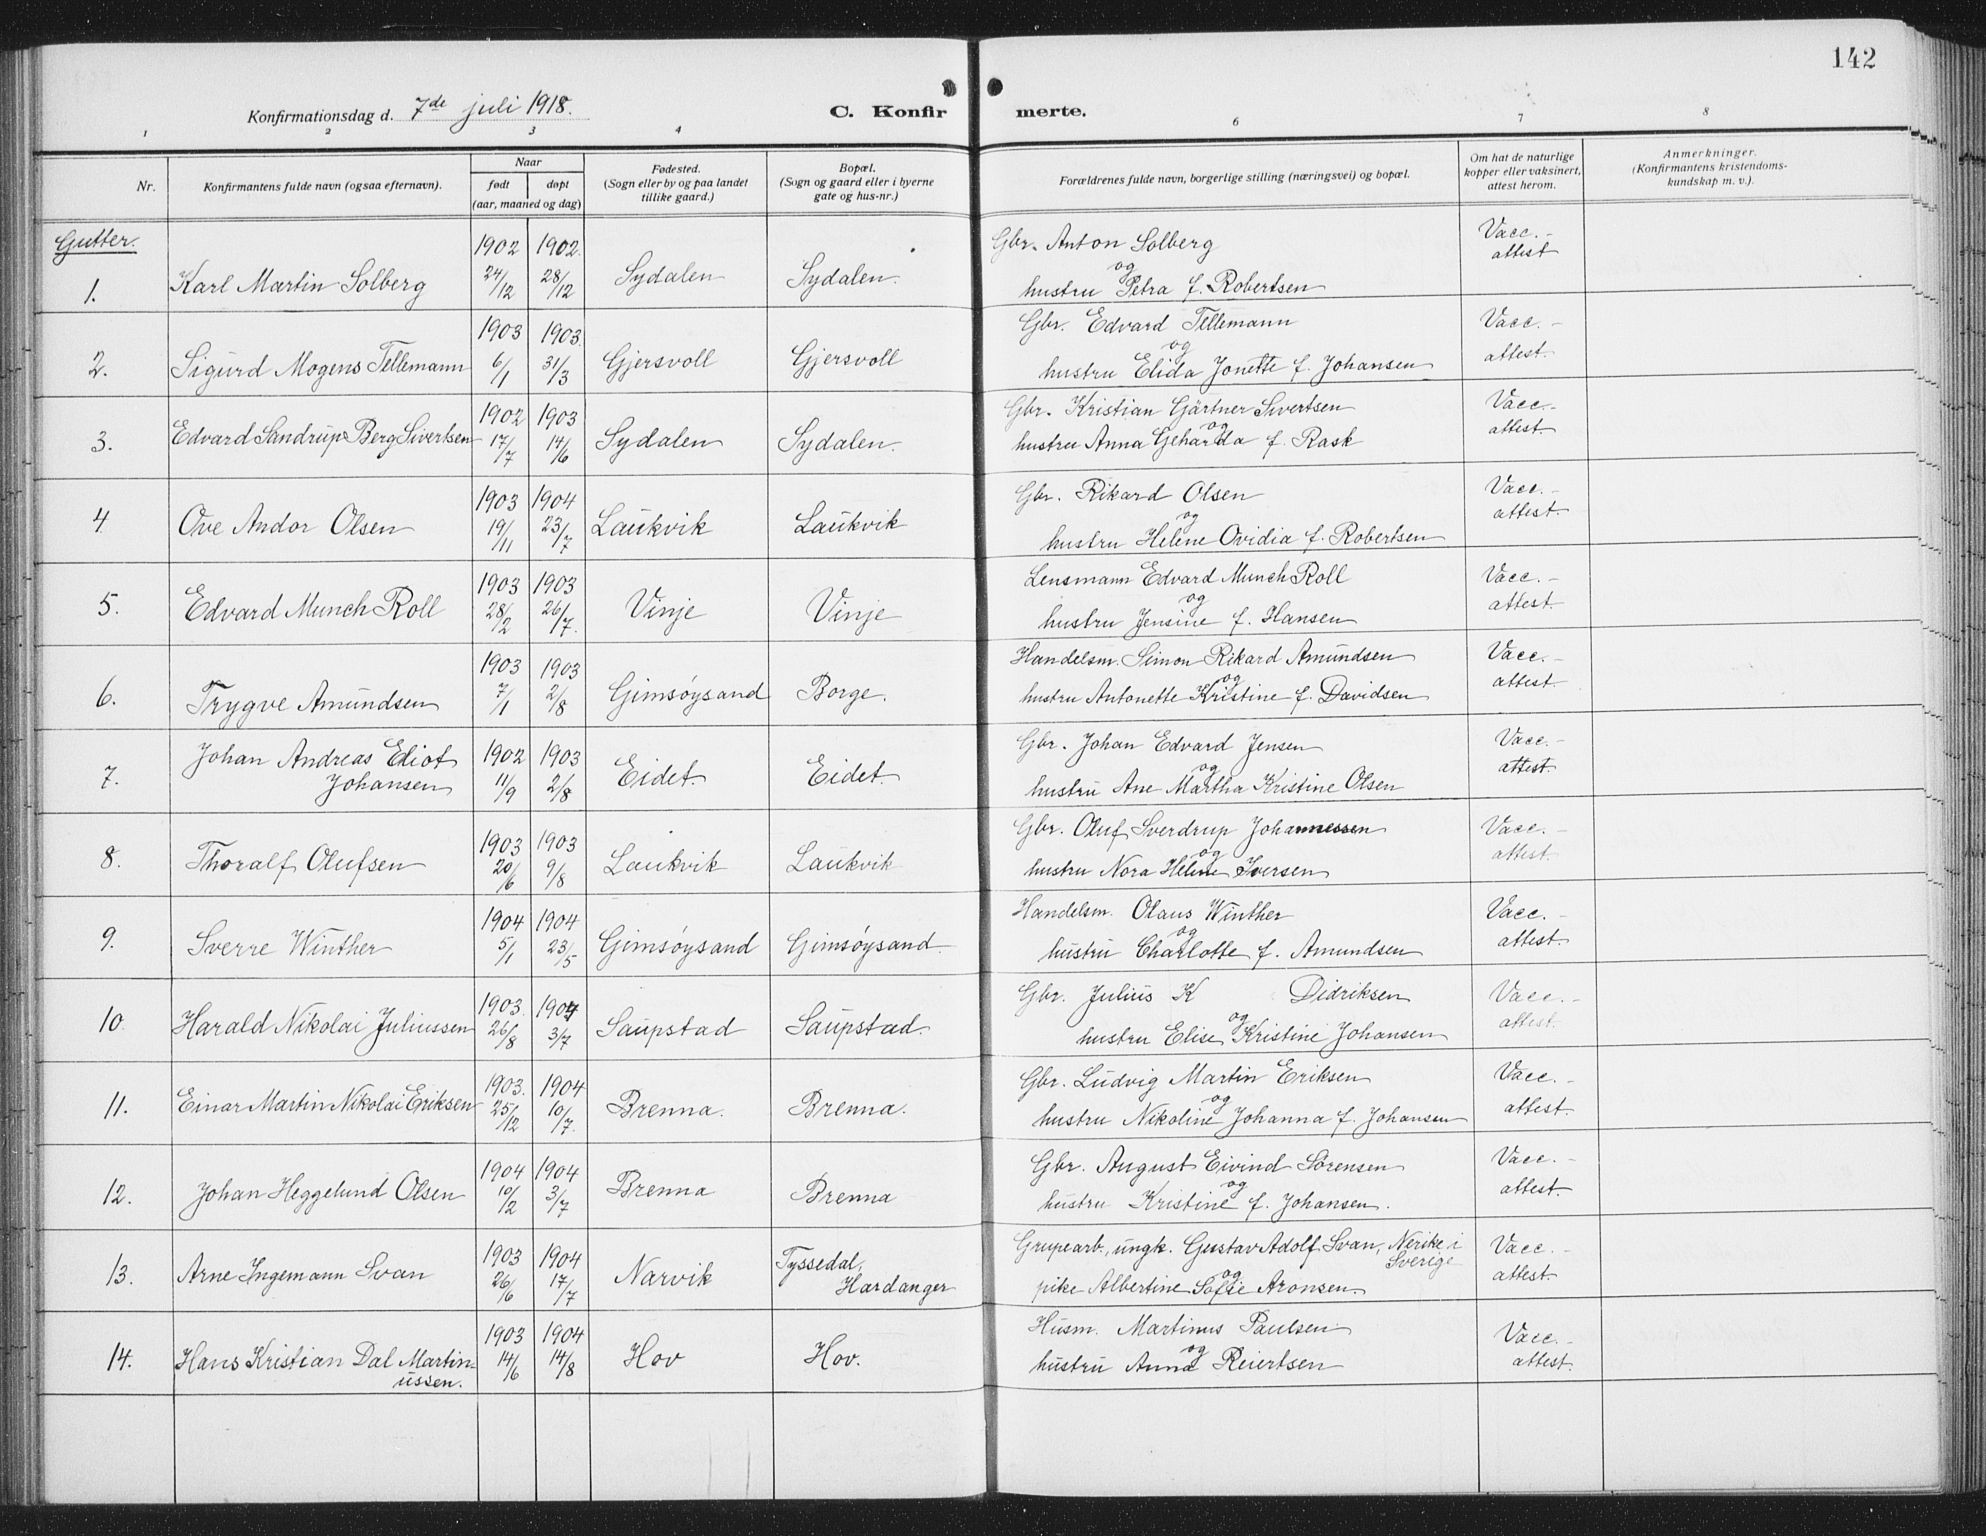 142
Konfirmationsdag d. 7de juli 1918. C. Konfirmerte.
1 2 3 4 6 7 8
Nr. Konfirmantens fulde navn (ogsaa efternavn). Naar født døpt (aar, maaned og dag) Fødested. (Sogn eller by og paa landet tillike gaard.) Bopæl. (Sogn og gaard eller i byerne gate og hus-nr.) Forældrenes fulde navn, borgerlige stilling (næringsvei) og bopæl. Om hat de naturlige kopper eller vaksinert, attest herom. Anmerkninger. (Konfirmantens kristendomskundskap m. v.).
Gutter.
1. Karl Martin Solberg 1902 24/12 1902. 28/12 Sydalen Sydalen. Gbr. Anton Solberg og hustru Petra f. Robertsen Vacc.- attest
2. Sigurd Mogens Tellemann 1903 6/1 1903. 31/3 Gjersvoll Gjersvoll Gbr. Edvard Tellemann og hustru Elida Jonette f. Johansen Vacc.- attest.
3. Edvard Sandrup Berg Sivertsen 1902 17/7 1903 14/6 Sydalen Sydalen. Gbr. Kristian Gärtner Sivertsen og hustru Anna Geharda f. Rask Vacc.- attest.
4. Ove Andor Olsen 1903 19/11 1904 23/7 Laukvik Laukvik Gbr. Rikard Olsen og hustru Helene Ovidia f. Robertsen Vacc.- attest.
5. Edvard Munch Roll 1903 28/2 1903 26/7. Vinje Vinje Lensmann Edvard Munch Roll og hustru Jensine f. Hansen Vacc.- attest.
6. Trygve Amundsen 1903 7/1 1903 2/8 Gimsøysand Borge. Handelsm. Simon Rikard Amundsen og hustru Antonette Kristine f. Davidsen Vacc.- attest.
7. Johan Andreas Eliot Johansen 1902 11/9 1903 2/8 Eidet. Eidet. Gbr. Johan Edvard Jensen og hustru Ane Martha Kristine Olsen Vacc.- attest.
8. Thoralf Olufsen 1903 20/6 1903 9/8 Laukvik Laukvik Gbr. Oluf Sverdrup Johannessen og hustru Nora Heline Iversen Vacc.- attest.
9. Sverre Winther 1904 5/1 1904 23/5 Gimsøysand Gimsøysand Handelsm. Olaus Winther og hustru Charlotte f. Amundsen Vacc.- attest.
10. Harald Nikolai Juliussen 1903. 26/8 1904 3/7 Saupstad Saupstad. Gbr. Julius K Didriksen og hustru Elise Kristine Johansen Vacc.- attest.
11. Einar Martin Nikolai Eriksen 1903. 25/12 1904 10/7. Brenna. Brenna. Gbr. Ludvig Martin Eriksen og hustru Nikoline Johanna f. Johansen Vacc.- attest.
12. Johan Heggelund Olsen 1904 10/2 1904 3/7 Brenna Brenna Gbr. August Eivind Sørensen og hustru Kristine f. Johansen. Vacc.- attest.
13. Arne Ingemann Svan 1903 26/6 1904 17/7 Narvik Tyssedal, Hardanger Grupearb., ungk. Gustav Adolf Svan, Nerike i Sverige og pike Albertine Sofie Aronsen. Vacc.- attest.
14. Hans Kristian Dal Martinussen. 1903 14/6 1904 14/8 Hov Hov. Husm. Martinus Paulsen og hustru Anna Reiertsen Vacc.- attest.